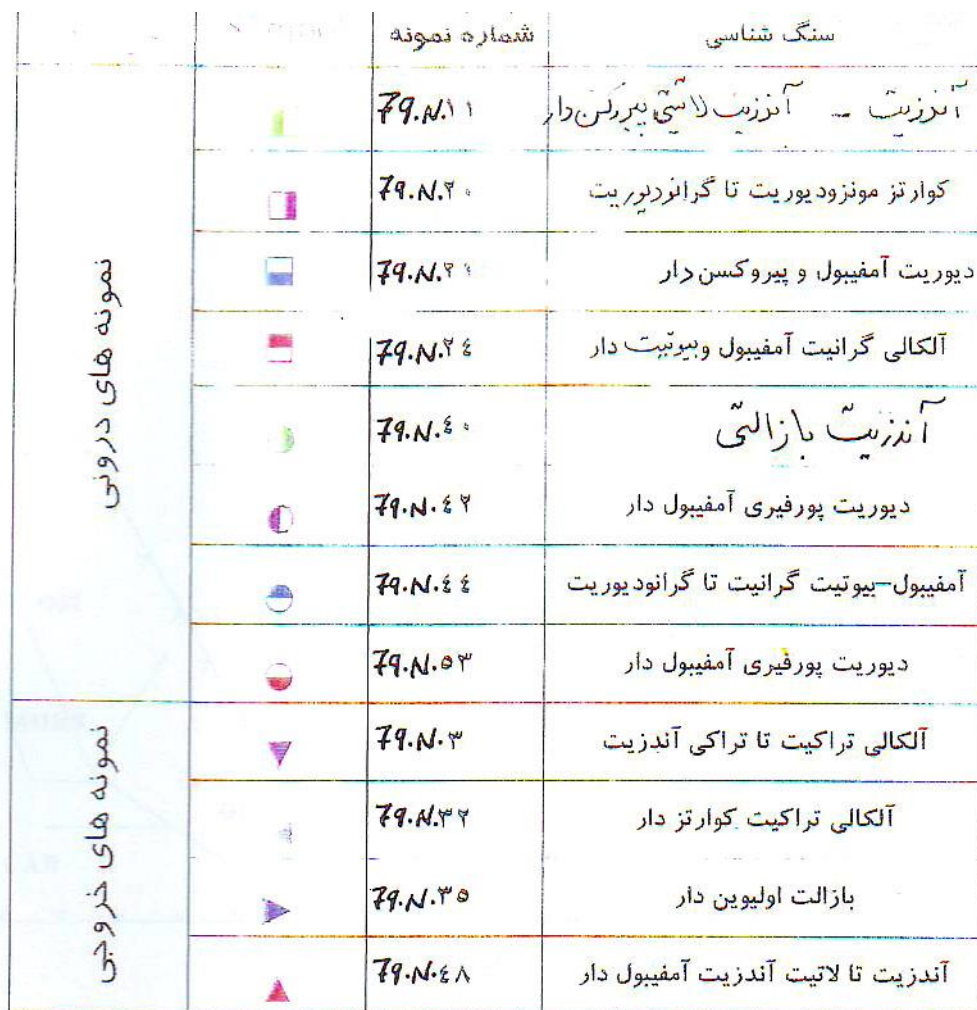 سنگ شناسی شماره نمونه
آندزیت - آندزیت لاتیتی پیروکسن دار 79.N.۱۱
کوارتز مونزودیوریت تا گرانودیوریت 79.N.۲۰
دیوریت آمفیبول و پیروکسن دار 79.N.۲۱
آلکالی گرانیت آمفیبول و بیوتیت دار 79.N.۲٤
آندزیت بازالتی 79.N.٤۰
دیوریت پورفیری آمفیبول دار 79.N.٤۲
آمفیبول-بیوتیت گرانیت تا گرانودیوریت 79.N.٤٤
دیوریت پورفیری آمفیبول دار 79.N.۵۳
نمونه های درونی
آلکالی تراکیت تا تراکی آندزیت 79.N.۳
آلکالی تراکیت کوارتز دار 79.N.۳۲
بازالت اولیوین دار 79.N.۳۵
آندزیت تا لاتیت آندزیت آمفیبول دار 79.N.٤۸
نمونه های خروجی